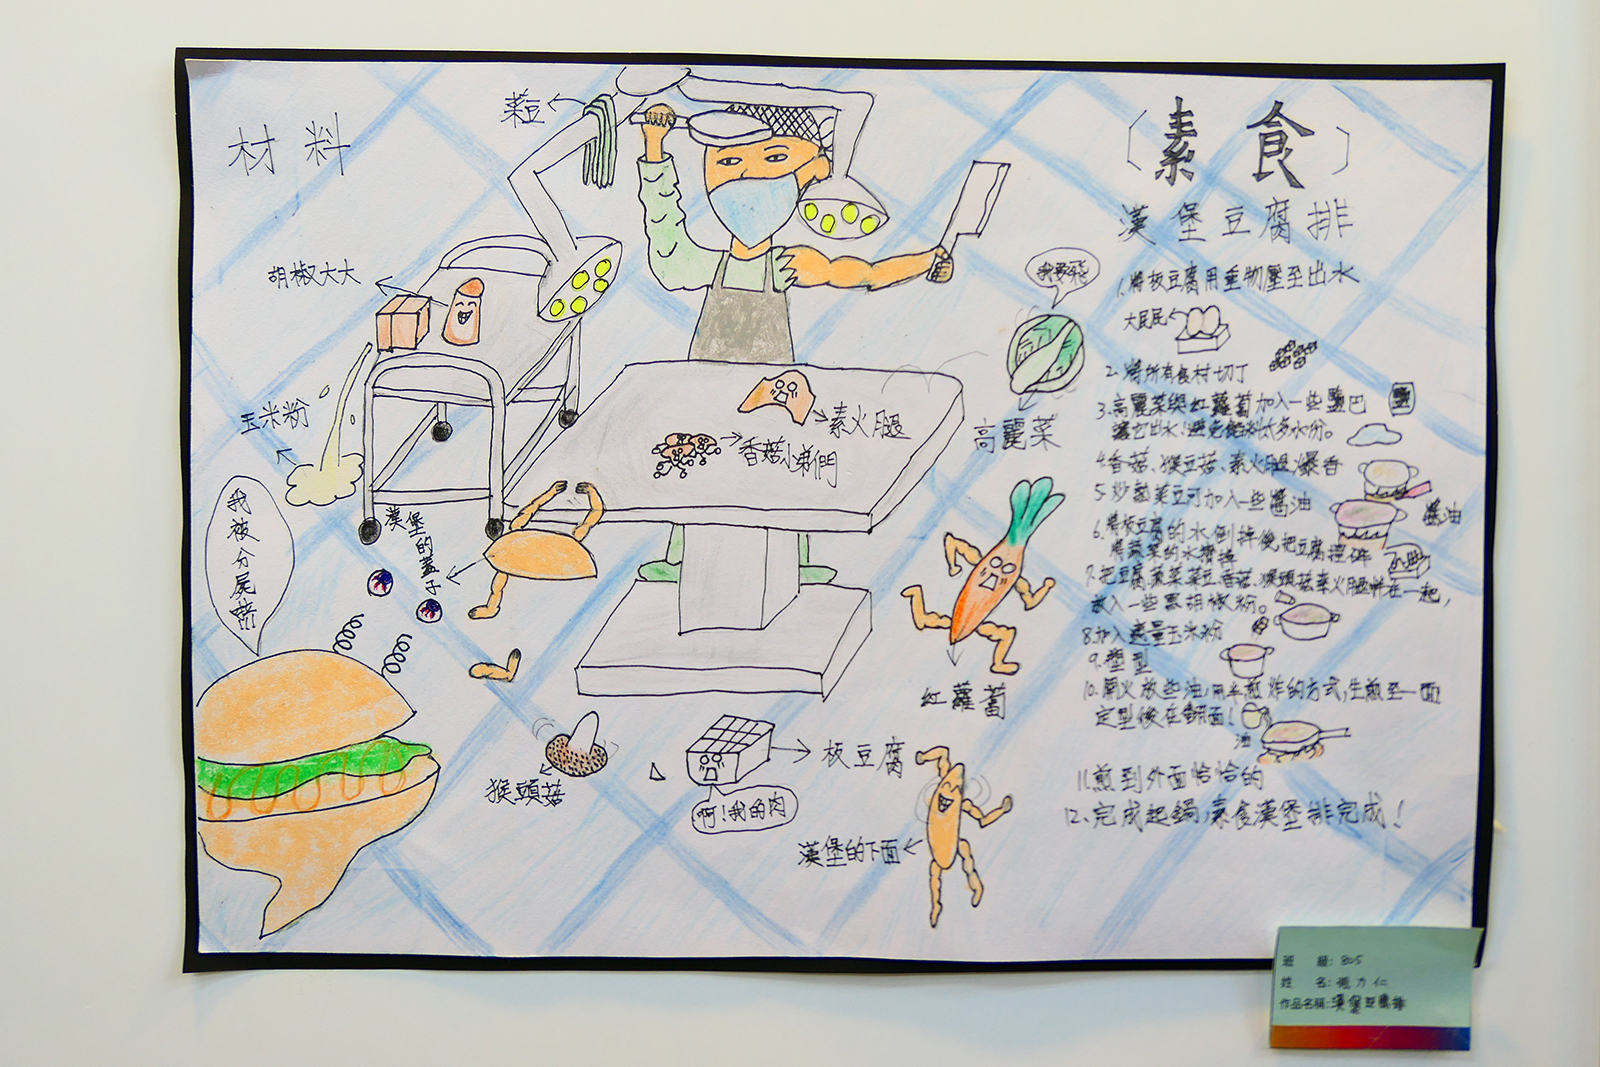 材料
菜豆
胡椒大大
玉米粉
我被分屍啦
漢堡的蓋子
素火腿
香菇小弟們
猴頭菇
板豆腐
啊!我的肉
漢堡的下面
高麗菜
紅蘿蔔
〔素食〕
漢堡豆腐排
1.將板豆腐用重物壓至出水
2.將所有食材切丁
3.高麗菜與紅蘿蔔加入一些鹽巴
鹽
讓它出水,避免餡料太多水份。
4.香菇、猴豆菇、素火腿爆香
5.炒熟菜豆可加入一些醬油
醬油
6.將板豆腐的水倒掉後把豆腐捏碎
將蔬菜的水擠掉
7.把豆腐、蔬菜、菜豆、香菇、猴頭菇素火腿拌在一起,
放入一些黑胡椒粉。
8.加入適量玉米粉
9.塑型
10.開火放些油,用半煎炸的方式,生煎至一面
定型後在翻面!
油
11.煎到外面恰恰的
12.完成起鍋,素食漢堡排完成!
班 級:805
姓 名:力仁
作品名稱:漢堡豆腐排